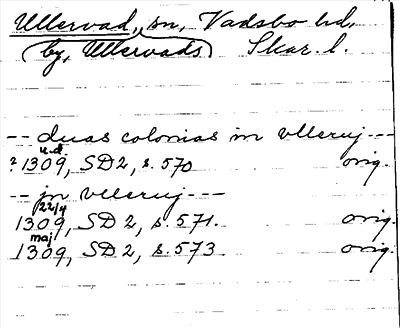 Ullervad, sn, Vadsbo hd,
by, Ullervads Skar. l.
-- duas colonias in vlleruj ---
u.d.
? 1309, SD2, s. 570 orig.
-- jn vlleruj ---
22/4
1309, SD2, s. 571. orig.
maj
1309, SD2, s. 573 orig.